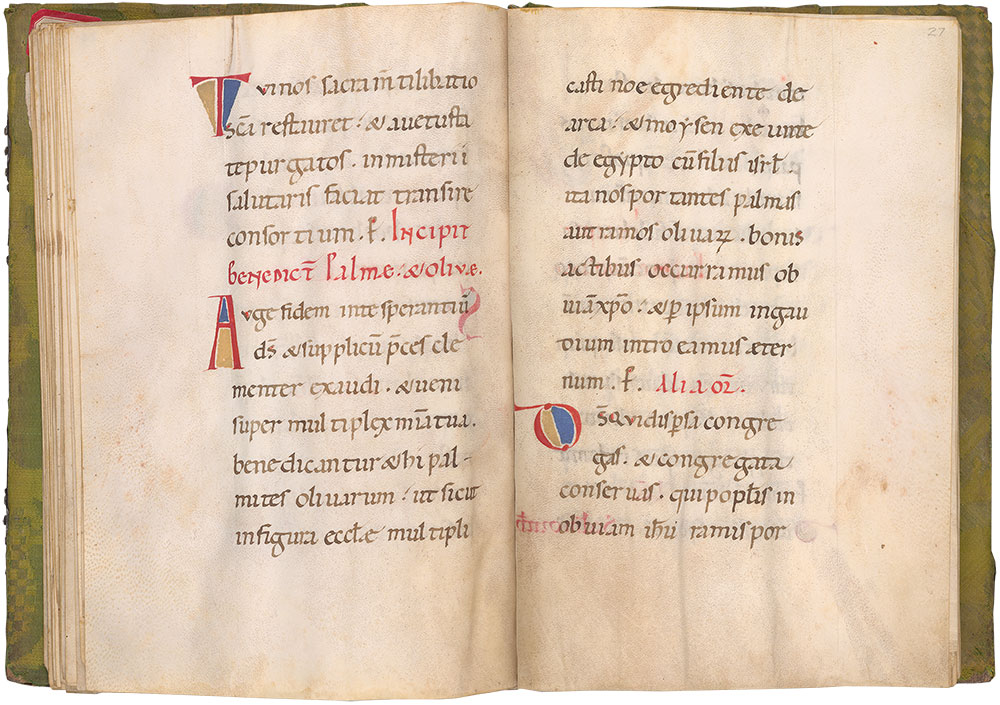 Tui nos sacram̃ti libatio
Sc̃a restauret · & a uetusta
te purgatos · in misterii
salutaris faciat transire
consortium · P̶. Incipit
benedict̃ Palmę · & olivę.
Auge fidem in te sperantiũ
ds̃ & supplicũ p̃ces cle
menter exaudi · & ueni
super multiplex mĩa tua ·
benedicantur & hi pal-
mites oliuarum · ut sicut
in figura eccłę multipli
27
casti noe egrediente de
arca · & moysen exeunte
de egypto cũ filiis isrł ·
ita nos portantes palmas
aut ramos oliuaꝝ · bonis
actibus occurramus ob
uiã xp̃o · & ꝑ ipsum in gau
dium introeamus æter
num · P̶. Alia or̃.
Ds̃ qui disꝑsa congre
gas · & congregata
conseruas · qui popłis in
obuiam ih̃u ramis por